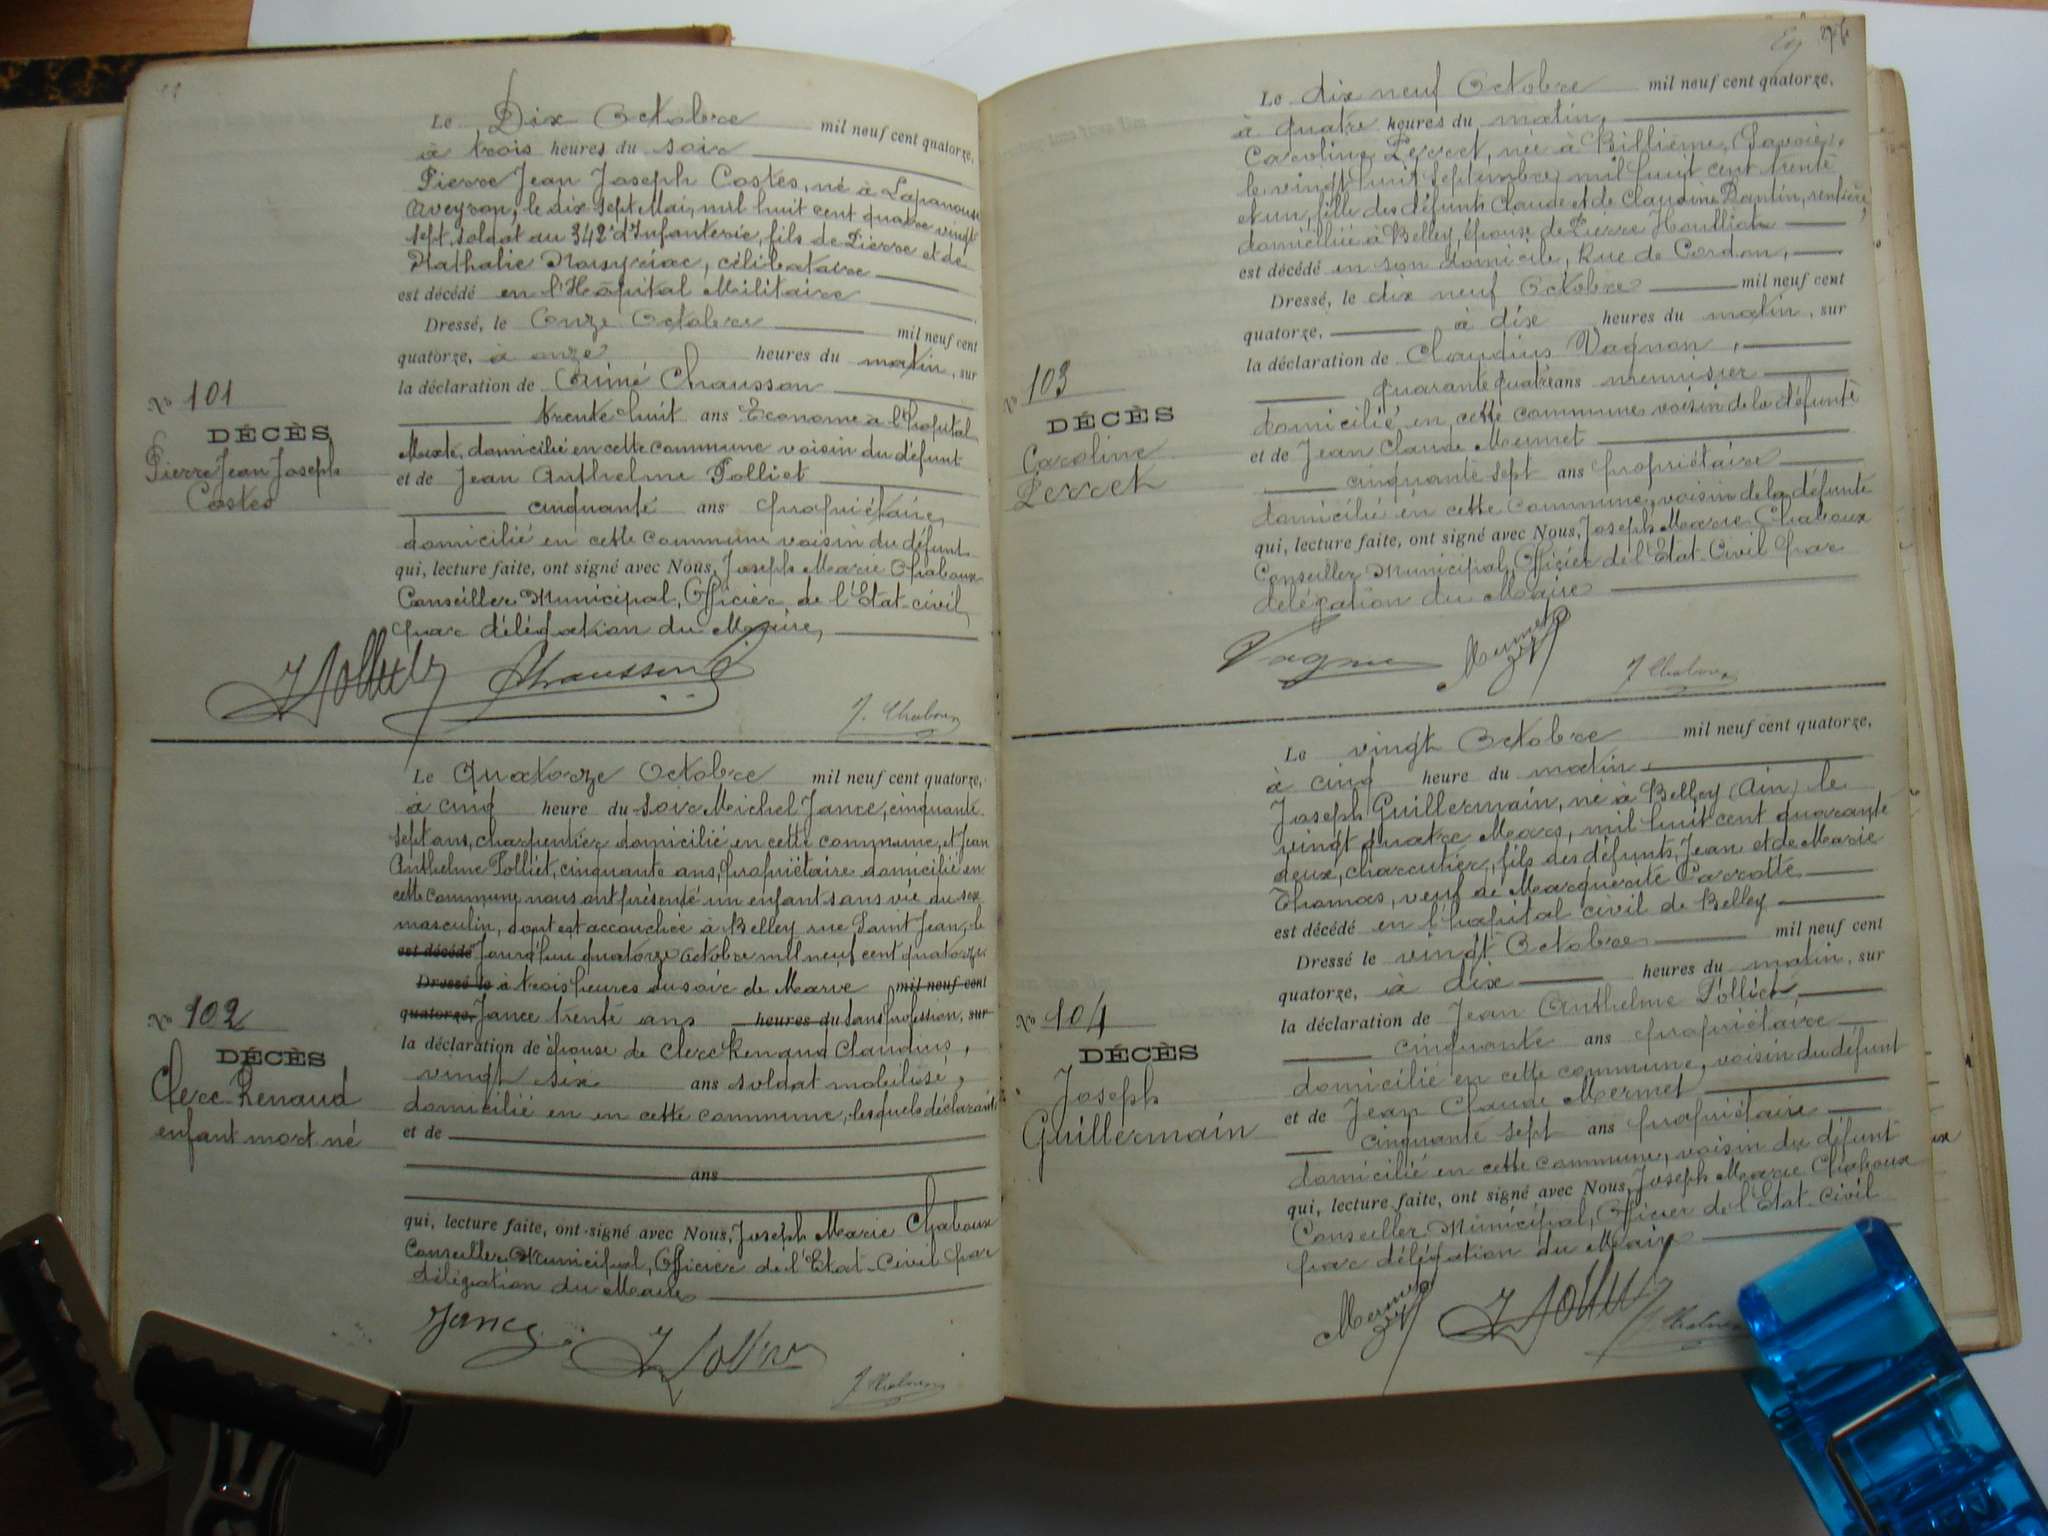 Le Dix Octobre mil neuf cent quatorze,
à trois heures du soir
Pierre Jean Joseph Costes, né à Lapanouse
Aveyron, le dix sept Mai, mil huit cent quatre vingt
sept, soldat au 342e d'Infanterie, fils de Pierre et de
Nathalie, célibataire
est décédé en l'Hôpital Militaire
Dressé, le Onze Octobre mil neuf cent
quatorze, à onze heures du matin, sur
la déclaration de Aimé Chausson
trente huit ans Econome à l'hopital
Mixte, domicilié en cette commune voisin du défunt
et de Jean Anthelme Polliet
cinquante ans propriétaire,
domicilié en cette commune voisin du défunt
qui, lecture faite, ont signé avec Nous, Joseph Marie Chaboux
Conseiller Municipal, Officier de l'Etat-civil,
par délégation du Maire,
No 101
DÉCÈS
Pierre Jean Joseph
Costes
JPolliet Chausson
J. Chaboux
Le Quatorze Octobre mil neuf cent quatorze,
à cinq heure du soir Michel Jance, cinquante
sept ans, charpentier domicilié en cette commune, et Jean
Anthelme Polliet, cinquante ans, propriétaire domicilié en
cette commune nous ont présenté un enfant sans vie du sexe
masculin, dont est accouchée à Belley rue Saint Jean, le
est décédé Jourd'hui quatorze octobre mil neuf cent quatorze
Dressé le à trois heures du soir de Marie mil neuf cent
quatorze, Jance trente ans heures du sans profession, sur
la déclaration de épouse de Clerc Renaud Claudius,
vingt six ans soldat mobilisé,
domicilié en en cette commune, lesquels déclarants
et de
ans
qui, lecture faite, ont signé avec Nous, Joseph Marie Chaboux
Conseiller Municipal, Officier de l'Etat-Civil par
délégation du Maire
No 102
DÉCÈS
Clerc Renaud
enfant mort né
Jance JPolliet
J. Chaboux
76
Le dix neuf Octobre mil neuf cent quatorze,
à quatre heures du matin,
Caroline Perret, née à Billième, (Savoie),
le vingt huit septembre, mil huit cent trente
et un, fille des défunts Claude et de Claudine Dantin, rentière,
domiciliée à Belley, épouse de Pierre
est décédé en son domicile, Rue de Cordon,
Dressé, le dix neuf Octobre mil neuf cent
quatorze, à dix heures du matin, sur
la déclaration de Claudius Vagnon,
quarante quatre ans menuisier
domicilié en cette commune voisin de la défunte
et de Jean Claude Mermet
cinquante sept ans propriétaire
domicilié en cette commune, voisin de la défunte
qui, lecture faite, ont signé avec Nous, Joseph Marie Chaboux
Conseiller Municipal, Officier de l'Etat-Civil par
délégation du Maire
No 103
DÉCÈS
Caroline
Perret
Vagnon Mermet J. Chaboux
Le vingt Octobre mil neuf cent quatorze,
à cinq heure du matin,
Joseph Guillermain, né à Belley (Ain) le
vingt quatre Mars, mil huit cent quarante
deux, charcutier, fils des défunts, Jean et de Marie
Thomas, veuf de Marguerite Carrotte
est décédé en l'hopital civil de Belley
Dressé le vingt Octobre mil neuf cent
quatorze, à dix heures du matin, sur
la déclaration de Jean Anthelme Polliet,
cinquante ans propriétaire
domicilié en cette commune, voisin du défunt
et de Jean Claude Mermet
cinquante sept ans propriétaire
domicilié en cette commune, voisin du défunt
qui, lecture faite, ont signé avec Nous, Joseph Marie Chaboux
Conseiller Municipal, Officier de l'Etat-Civil
par délégation du Maire
No 104
DÉCÈS
Joseph
Guillermain
Mermet JPolliet J. Chaboux